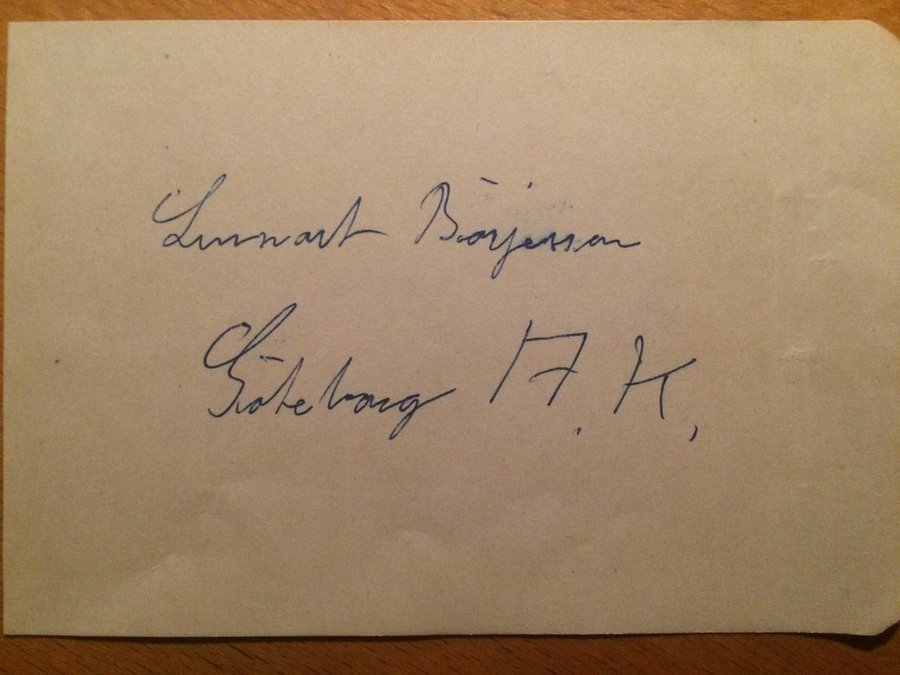 Lennart Börjesson
Göteborg A. K.